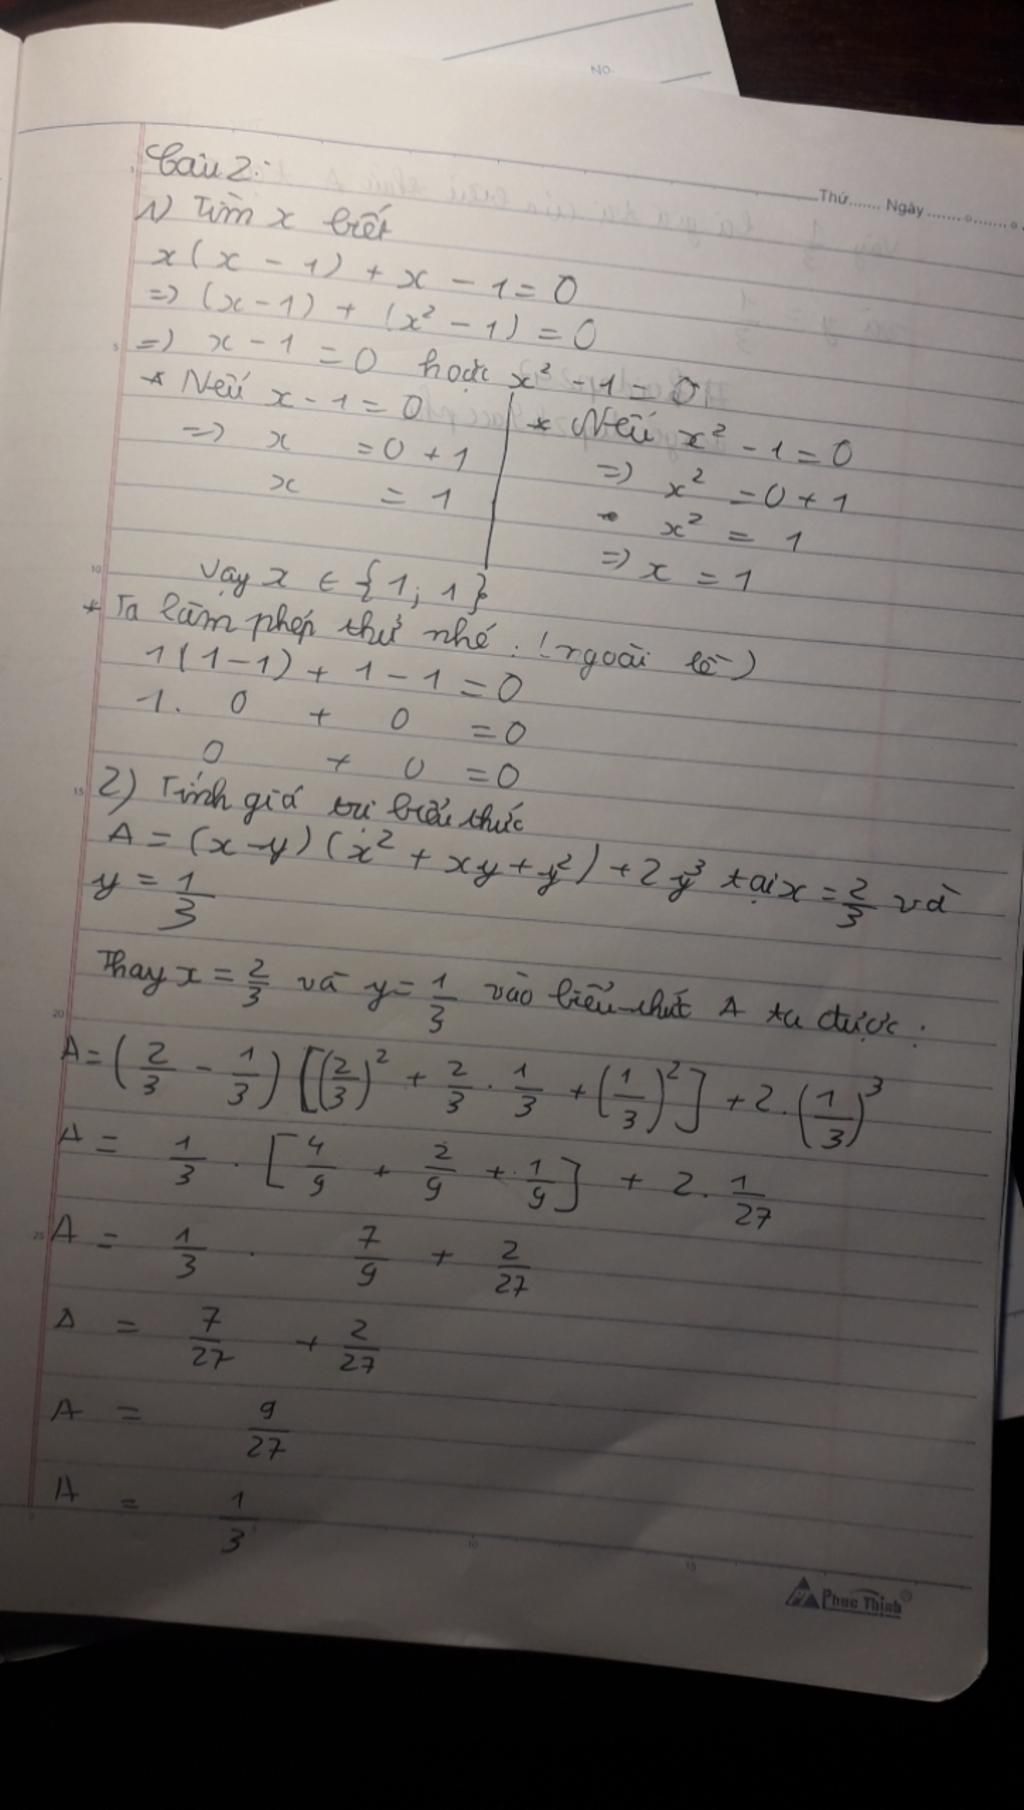 NO.
Thứ....... Ngày ....... o ....... o
Câu 2:
1) Tìm x biết
x(x - 1) + x - 1 = 0
=> (x - 1) + (x² - 1) = 0
=> x - 1 = 0 hoặc x² - 1 = 0
* Nếu x - 1 = 0
=> x = 0 + 1
x = 1
* Nếu x² - 1 = 0
=> x² = 0 + 1
x² = 1
=> x = 1
Vậy x ∈ {1; 1}
* Ta làm phép thử nhé. (ngoài lề)
1(1 - 1) + 1 - 1 = 0
1. 0 + 0 = 0
0 + 0 = 0
2) Tính giá trị biểu thức
A = (x - y)(x² + xy + y²) + 2y³ tại x = 2/3 và
y = 1/3
Thay x = 2/3 và y = 1/3 vào biểu thức A ta được:
A = (2/3 - 1/3) [(2/3)² + 2/3 . 1/3 + (1/3)²] + 2. (1/3)³
A = 1/3 . [4/9 + 2/9 + 1/9] + 2. 1/27
A = 1/3 . 7/9 + 2/27
A = 7/27 + 2/27
A = 9/27
A = 1/3
Phuc Thinh